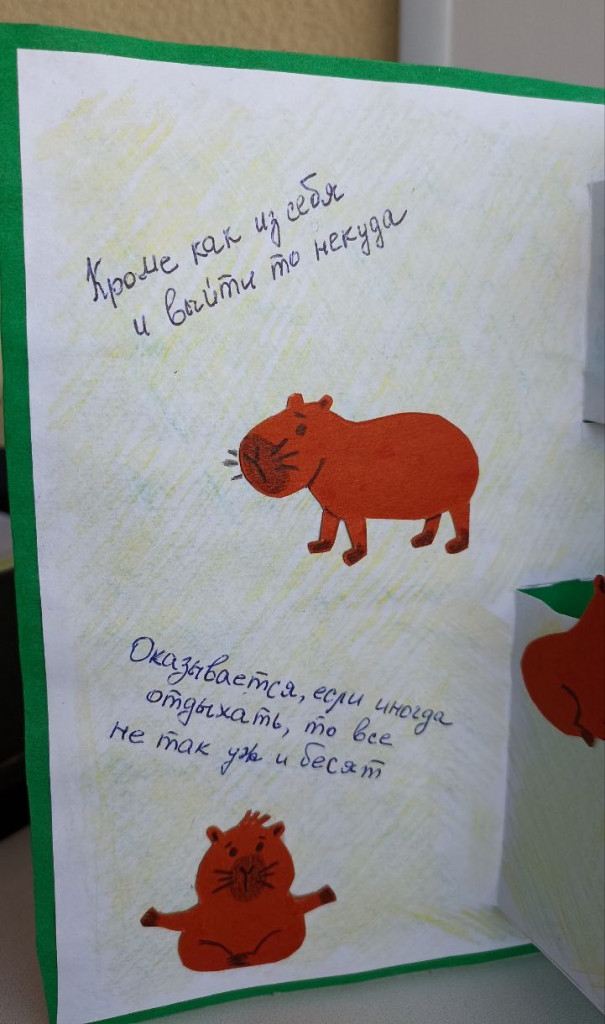 Кроме как из себя
и выйти то некуда
Оказывается, если иногда
отдыхать, то все
не так уж и бесят